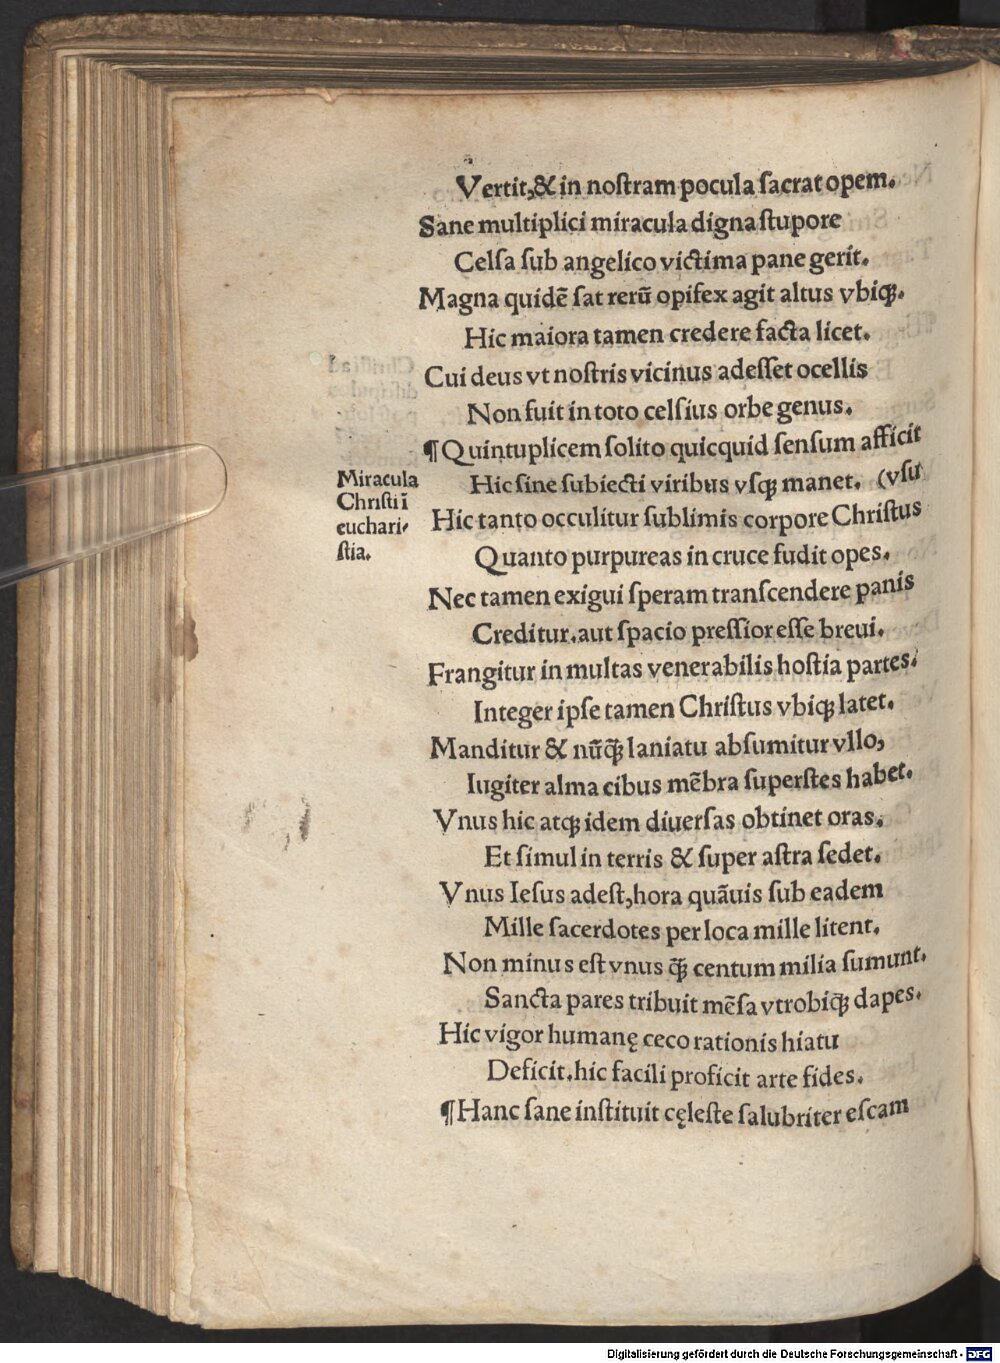 Vertit,& in nostram pocula sacrat opem.
Sane multiplici miracula digna stupore
Celsa sub angelico victima pane gerit.
Magna quidē sat rerū opifex agit altus vbiqꝫ.
Hic maiora tamen credere facta licet.
Cui deus vt nostris vicinus adesset ocellis
Non fuit in toto celsius orbe genus.
¶Quintuplicem solito quicquid sensum afficit
Hic sine subiecti viribus vsqꝫ manet. (vsu
Hic tanto occulitur sublimis corpore Christus
Quanto purpureas in cruce fudit opes.
Nec tamen exigui speram transcendere panis
Creditur.aut spacio pressior esse breui.
Frangitur in multas venerabilis hostia partes.
Integer ipse tamen Christus vbiqꝫ latet.
Manditur & nūq̄ꝫ laniatu absumitur vllo,
Iugiter alma cibus mēbra superstes habet.
Vnus hic atqꝫ idem diuersas obtinet oras.
Et simul in terris & super astra sedet.
Vnus Iesus adest,hora quāuis sub eadem
Mille sacerdotes per loca mille litent.
Non minus est vnus q̄ꝫ centum milia sumunt.
Sancta pares tribuit mēsa vtrobiqꝫ dapes.
Hic vigor humanę ceco rationis hiatu
Deficit.hic facili proficit arte fides.
¶Hanc sane instituit cęleste salubriter escam
Miracula
Christi ī
euchari⸗
stia.
Digitalisierung gefördert durch die Deutsche Forschungsgemeinschaft - DFG